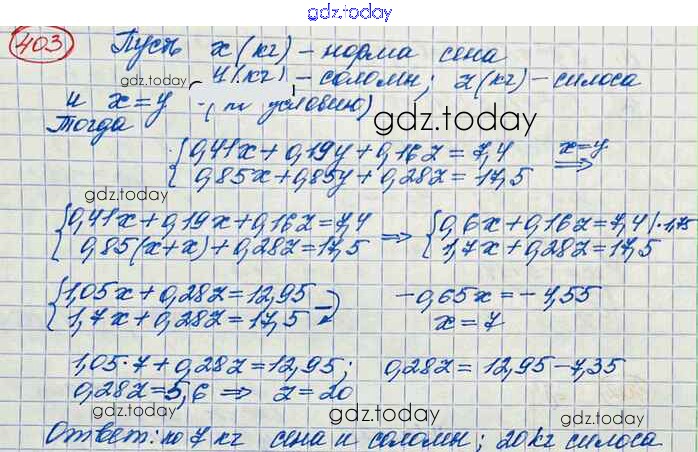 gdz.today
403 Пусть x (кг) - норма сена
gdz.today y (кг) - соломы; z (кг) - силоса
и x = y (по условию)
Тогда gdz.today
{0,41x + 0,19y + 0,16z = 7,4 x=y
0,85x + 0,85y + 0,28z = 17,5 ⇒
gdz.today
{0,41x + 0,19x + 0,16z = 7,4 {0,6x + 0,16z = 7,4 | · 1,75
0,85(x+x) + 0,28z = 17,5 ⇒ 1,7x + 0,28z = 17,5
{1,05x + 0,28z = 12,95 -0,65x = -4,55
1,7x + 0,28z = 17,5 x = 7
1,05·7 + 0,28z = 12,95; 0,28z = 12,95 - 7,35
0,28z = 5,6 ⇒ z = 20
gdz.today gdz.today gdz.today
Ответ: по 7 кг сена и соломы; 20 кг силоса